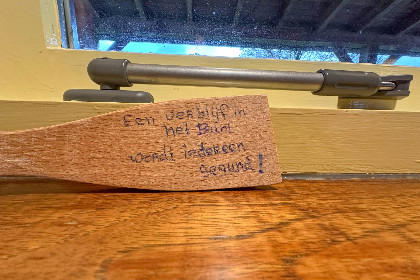 Een verblijf in
het Bunt
wordt Iedereen
gegund!